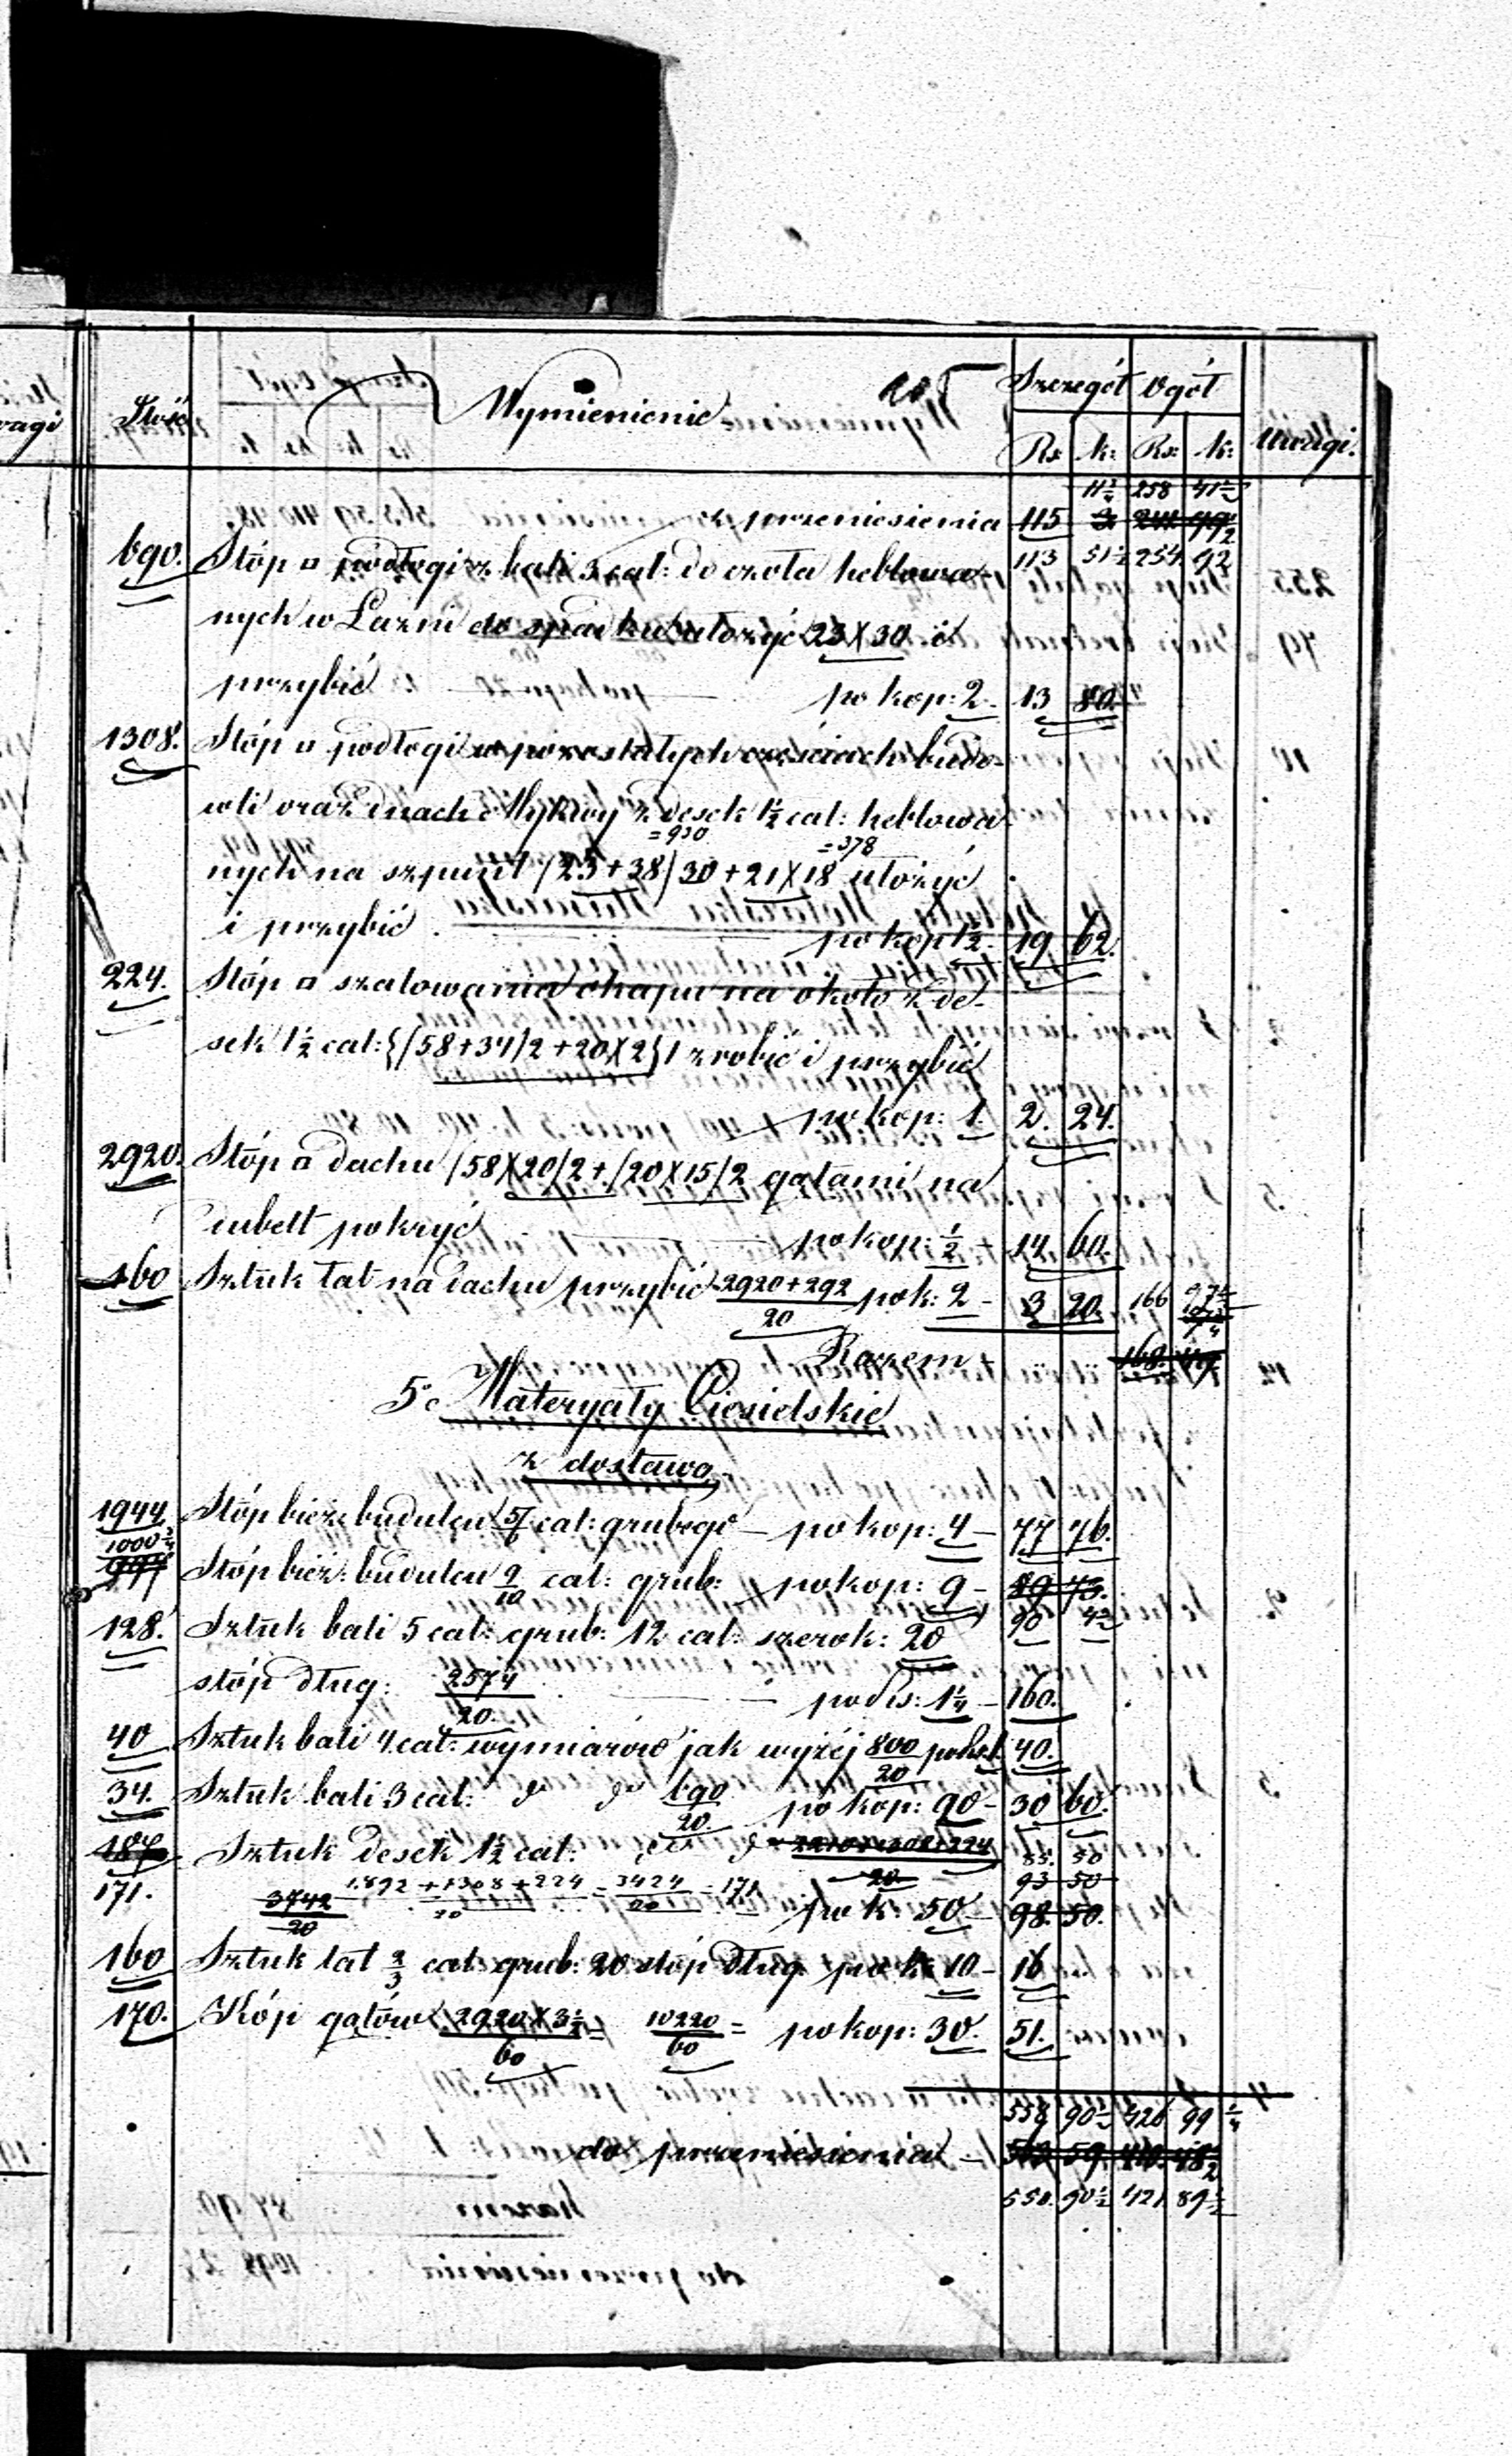 Ilość Wymienienie 205 Szczegół Ogół Uwagi.
Rs k: Rs: k:
11 3/4 258 41 1/2
z przeniesienia 115 3 241 99 1/2
113 51 1/4 254 92
690. Stóp □ podłogi z bali 3 cal: do czoła heblowa-
nych w Łazni do spadku ułożyć 23 X 30 i
przybić po kop: 2 - 13 80.
1308. Stóp □ podłogi w pozostałych częściach budo-
wli oraz dnach Mykwy z desek 1 1/2 cal: heblowa-
=930 =378
nych na szpunt (23+38) 30 + 21 X 18 ułożyć
i przybić po kop 1 1/2 - 19 62.
224. Stóp □ szalowania okapu na około z de-
sek 1 1/2 cal: {(58+34)2+20X2}1 zrobić i przybić
po kop: 1. 2. 24.
2920. Stóp □ dachu (58X20)2+(20X15)2 gątami na
dubelt pokryć po kop: 1/2 14. 60.
160 Sztuk łat na dachu przybić 2920+292 / 20 po k: 2 - 3 20. 166 97 1/4
Razem 168. 49
5c Materyały Ciesielskie
z dostawą
1944 Stóp bież: budulcu 5/6 cal: grubego - po kop: 4 - 77 76.
1000 3/4
997 Stóp bież: budulcu 9/10 cal: grub: po kop: 9 - 89 73.
90 4 1/2
128. Sztuk bali 5 cal: grub: 12 cal: szerok: 20
stóp dług: 2574 / 20. po rs: 1 1/4 - 160.
40 Sztuk bali 4 cal: wymiarów jak wyżéj 800 / 20 po rs: 1. 40.
34. Sztuk bali 3 cal: do do 690 / 20. po kop: 90 - 30 60.
187 Sztuk desek 1 1/2 cal: do do 2210+1308+224 / 20 85. 50
171. 1892+1308+224 / 20 = 3424 / 20 = 171 93 50
3742 / 20 po k: 50 - 98. 50.
160 Sztuk łat 2/3 cal: grub: 20 stóp dług po k: 10 - 16
170. Kóp gątów 2920X3 1/2 / 60 = 10220 / 60 = po kop: 30. 51.
558 90 1/2 426 99 1/4
do przeniesienia - 562 59. 410. 48 1/2
550. 90 1/2 421. 89 1/2